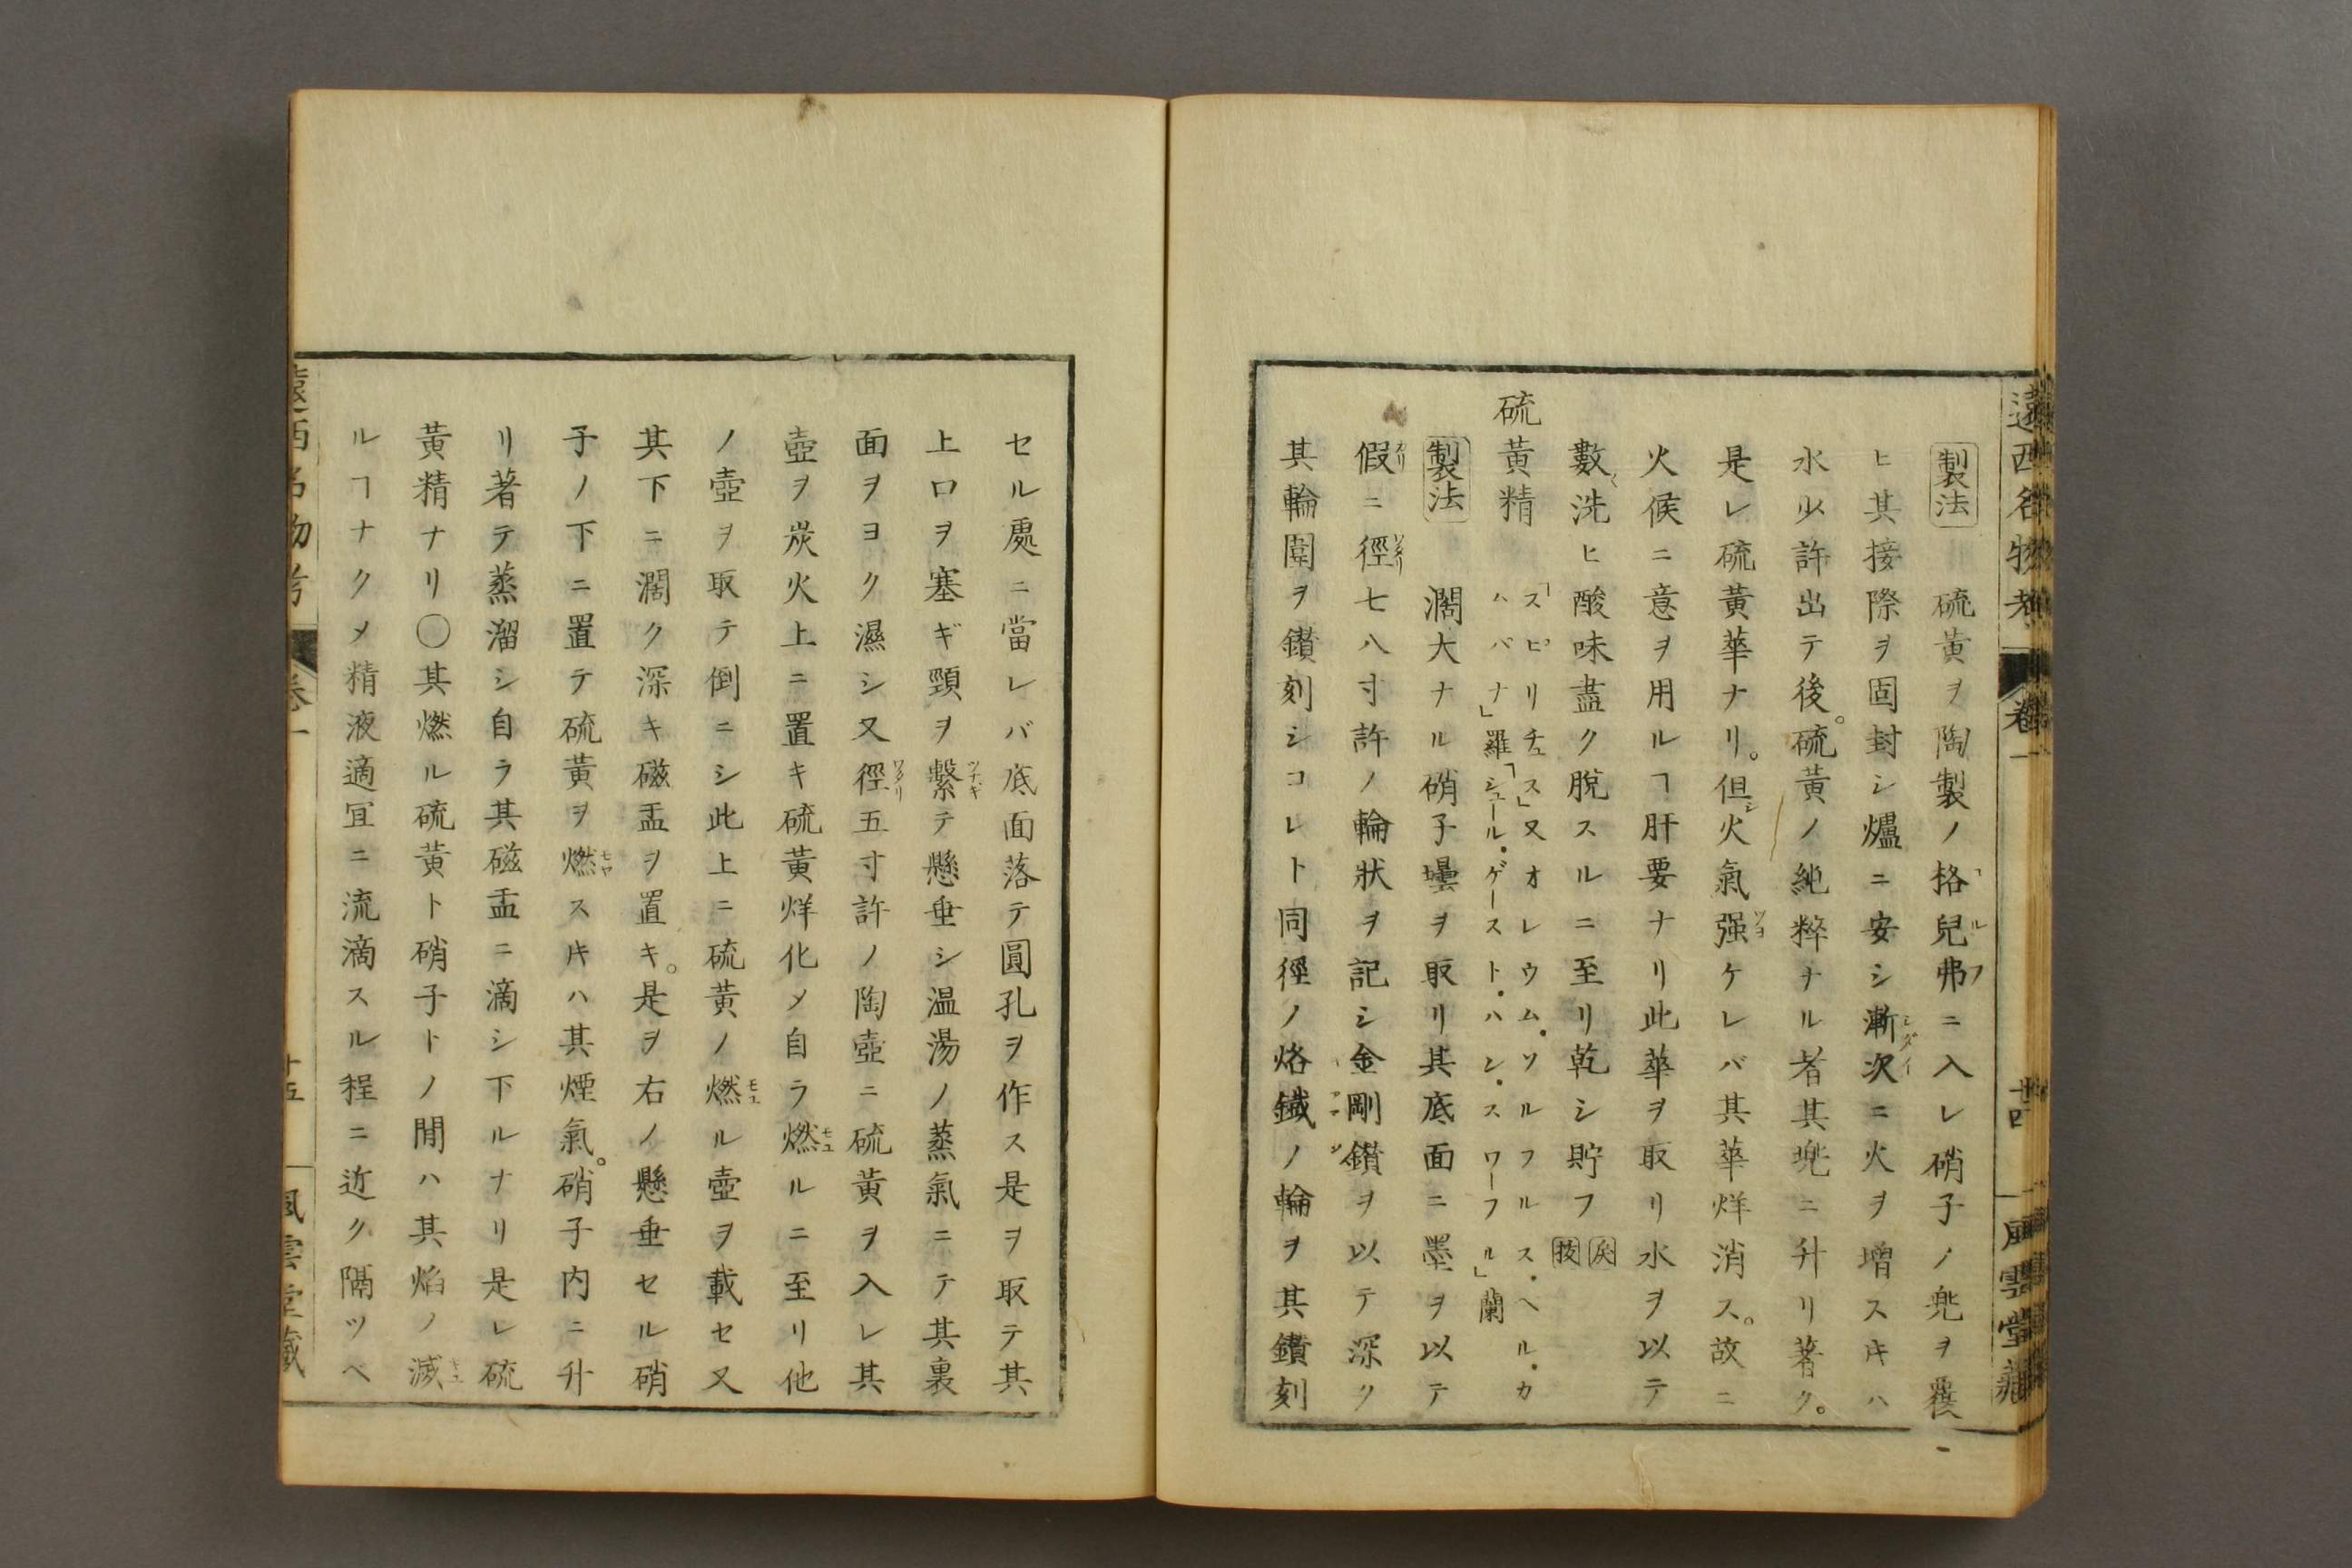 遠西名物考 卷一 十四 風雲堂藏
製法 硫黄ヲ陶製ノ格兒弗ニ入レ硝子ノ兜ヲ覆
ヒ其接際ヲ固封シ爐ニ安シ漸次ニ火ヲ增スキハ
水少許出テ後。硫黄ノ純粹ナル者其兜ニ升リ著ク。
是レ硫黄華ナリ。但火氣强ケレバ其華烊消ス。故ニ
火候ニ意ヲ用ルヿ肝要ナリ此華ヲ取リ水ヲ以テ
數洗ヒ酸味盡ク脫スルニ至リ乾シ貯フ
硫黄精 「スピリチュス」又オレウム・ソルフルス・ヘル・カ
ハバナ」羅「シュール・ゲースト・ハン・スワーフル」蘭
製法 濶大ナル硝子壜ヲ取リ其底面ニ墨ヲ以テ
假ニ徑七八寸許ノ輪狀ヲ記シ金剛鑽ヲ以テ深ク
其輪圍ヲ鑽刻シコレト同徑ノ烙鐵ノ輪ヲ其鑽刻
セル處ニ當レバ底面落テ圓孔ヲ作ス是ヲ取テ其
上口ヲ塞ギ頸ヲ繫テ懸垂シ温湯ノ蒸氣ニテ其裏
面ヲヨク濕シ又徑五寸許ノ陶壺ニ硫黄ヲ入レ其
壺ヲ炭火上ニ置キ硫黄烊化メ自ラ燃ルニ至リ他
ノ壺ヲ取テ倒ニシ此上ニ硫黄ノ燃ル壺ヲ載セ又
其下ニ濶ク深キ磁盂ヲ置キ。是ヲ右ノ懸垂セル硝
子ノ下ニ置テ硫黄ヲ燃スキハ其煙氣。硝子内ニ升
リ著テ蒸溜シ自ラ其磁盂ニ滴シ下ルナリ是レ硫
黄精ナリ〇其燃ル硫黄ト硝子トノ間ハ其焰ノ滅
ルヿナクメ精液適宜ニ流滴スル程ニ近ク隔ツベ
遠西名物考 卷一 十五 風雲堂藏